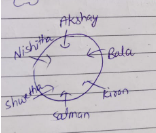 Akshay
Nishitta
Bala
Shwetha
Kiran
Salman